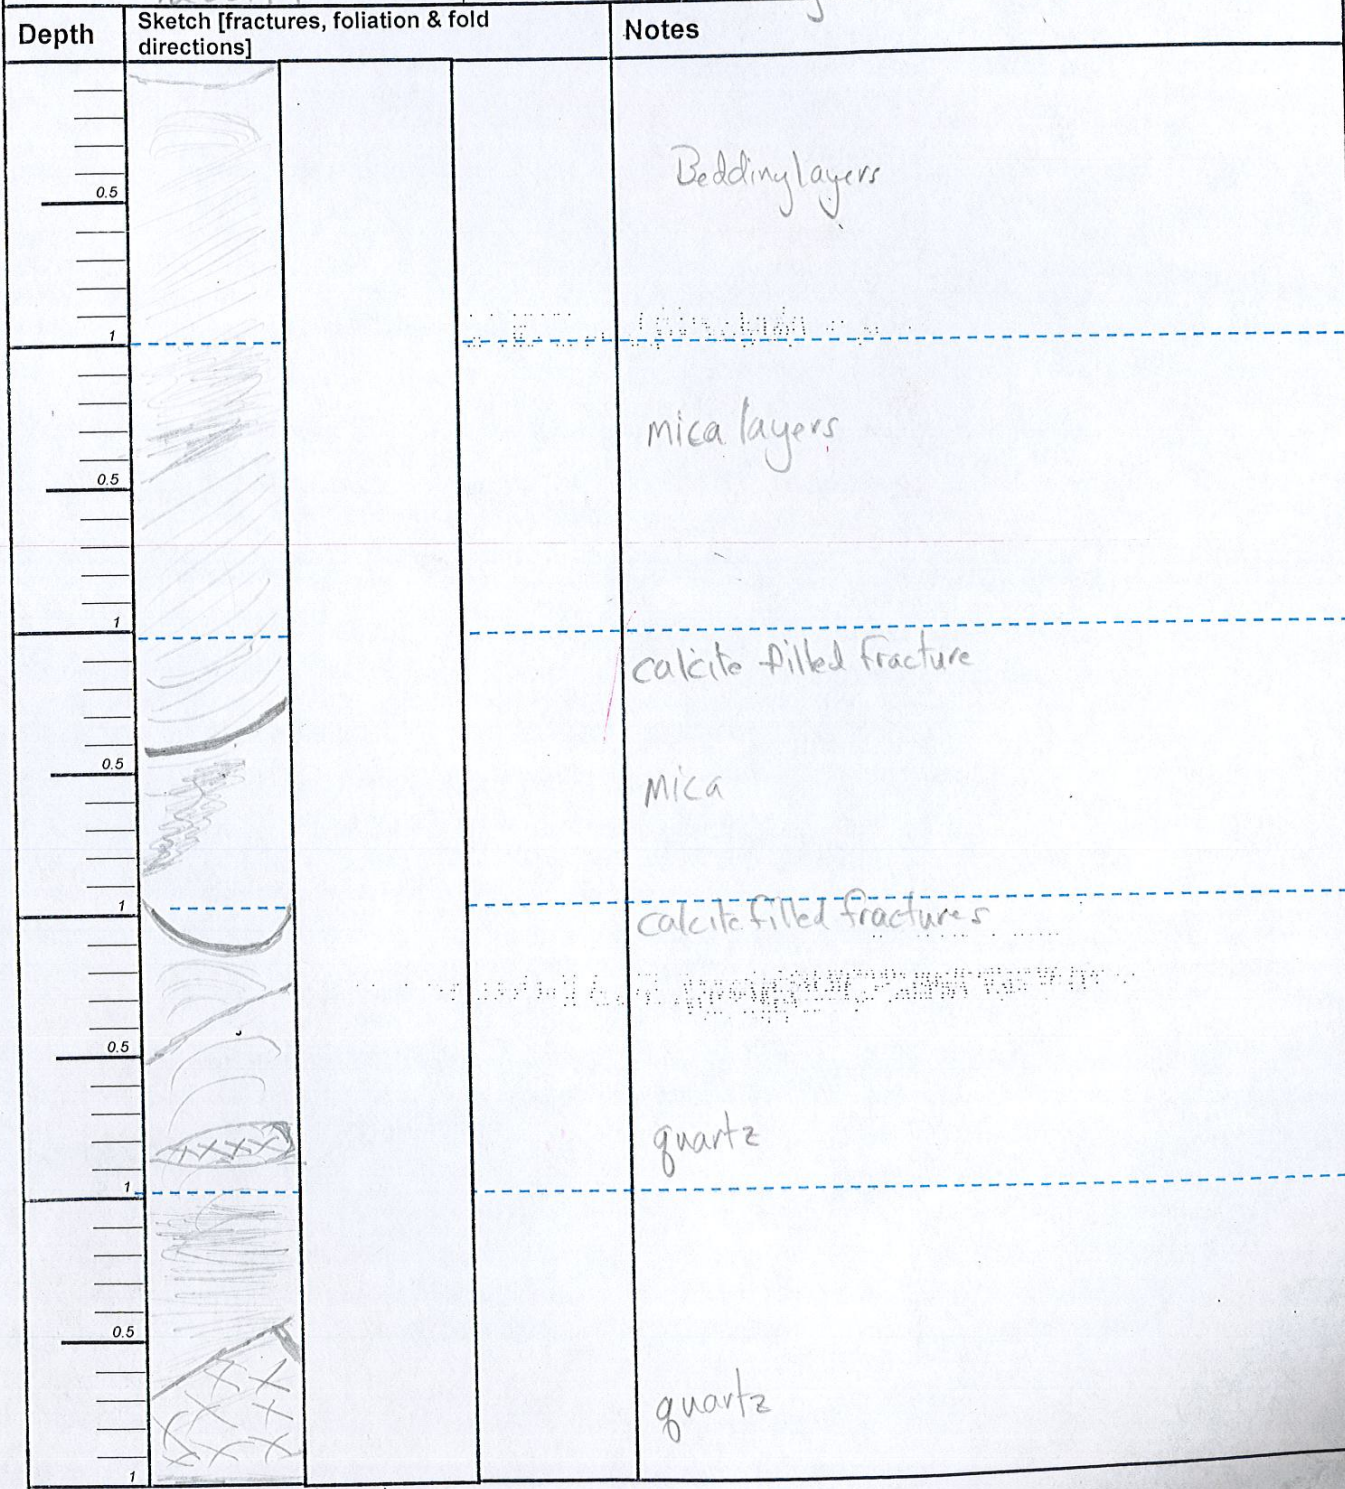 Depth
Sketch [fractures, foliation & fold
directions]
Notes
0.5
Bedding layers
1
mica layers
0.5
1
calcite filled fracture
0.5
mica
1
calcite filled fractures
0.5
quartz
1
0.5
quartz
1